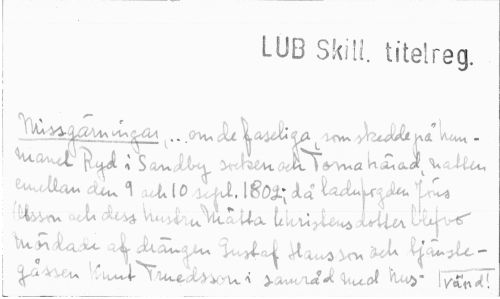 LUB Skill. titelreg.
Missgärningar, ... om de faseliga, som skedde på hem-
manet Ryd i Sandby socken och Torna härad, natten
emellan den 9 och 10 sept. 1802; då ladufogden Jöns
Olsson och dess hustru Mätta Christensdotter blefvo
mördade af drängen Gustaf Hansson och tjänste-
gåssen Knut Truedsson i samråd med hus-
vänd!